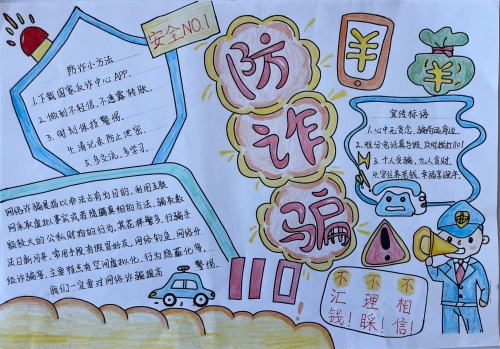 安全NO.1
防诈骗
防诈小方法
1.下载国家反诈中心APP.
2.做到不轻信,不透露转账.
3.时刻保持警惕.
4.请记录防止忘密.
5.多交流,多学习.
¥
¥
宣传标语
1.心中无贪念,骗局远身边.
2.陌生电话真与假,及时拨打110!
3.十人受骗,九人贪财.
4.守住养老钱,幸福享晚年.
网络诈骗是指以非法占有为目的,利用互联
网采取虚拟事实或者隐瞒真相的方法,骗取数
额较大的公私财物的行为.其花样繁多,行骗手
法日新月异,常用手段有假冒好友、网络钓鱼、网络升
级诈骗等,主要特点有空间虚拟化、行为隐蔽化等。
我们一定要对网络诈骗提高警惕.
110
不汇钱!
不理睬!
不相信!